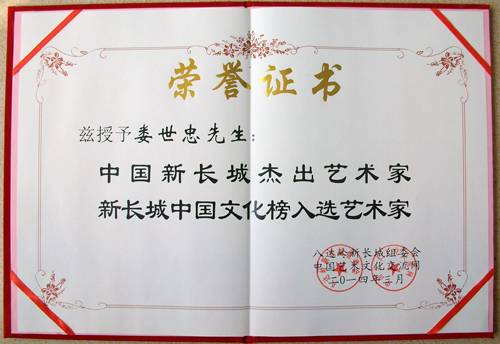 荣誉证书
兹授予娄世忠先生：
中国新长城杰出艺术家
新长城中国文化榜入选艺术家
八达岭新长城组委会
中国艺术文化交流网
二0一四年三月